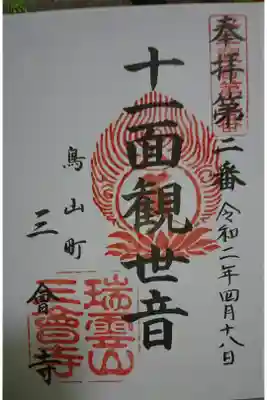 奉拝第二番
令和二年四月十八日
十一面観世音
鳥山町
三會寺
瑞雲山
三会寺